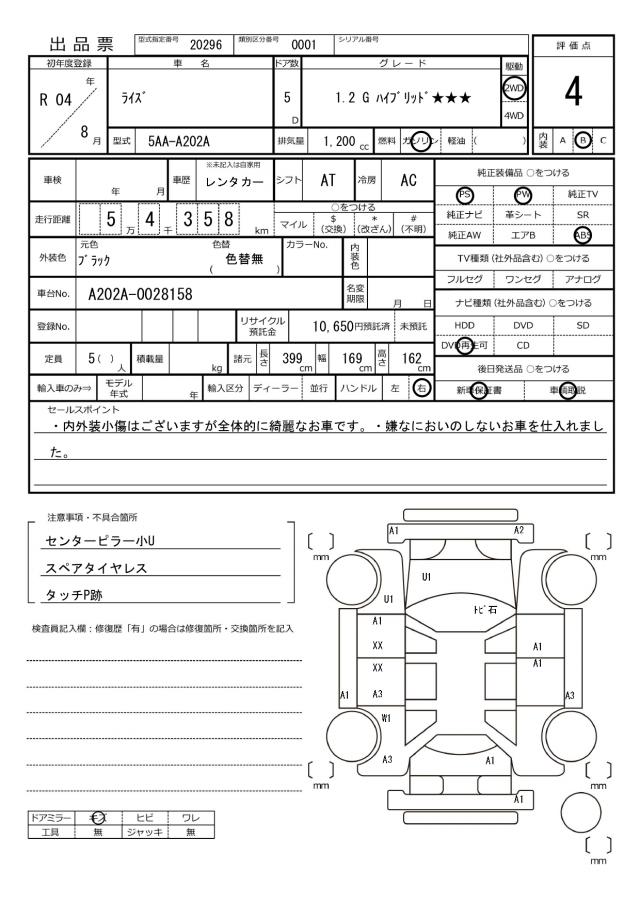 出品票 型式指定番号 20296 類別区分番号 0001 シリアル番号
評価点
4
初年度登録 車名 ドア数 グレード 駆動
R 04 年 8 月
ライズ 5 D 1.2 G ハイブリッド★★★ 2WD
4WD
型式 5AA-A202A 排気量 1,200 cc 燃料 ガソリン 軽油 ( )
内装 A B C
車検 年 月 車歴 ※未記入は自家用 レンタカー シフト AT 冷房 AC
走行距離 5 万 4 千 3 5 8 km
○をつける
マイル $ (交換) * (改ざん) # (不明)
外装色 元色 ブラック 色替 ( 色替無 ) カラーNo. 内装色
車台No. A202A-0028158 名変期限 月 日
登録No. リサイクル預託金 10,650円預託済 未預託
定員 5 ( ) 人 積載量 kg 諸元 長さ 399 cm 幅 169 cm 高さ 162 cm
輸入車のみ⇒ モデル年式 年 輸入区分 ディーラー 並行 ハンドル 左 右
純正装備品 ○をつける
PS PW 純正TV
純正ナビ 革シート SR
純正AW エアB ABS
TV種類 (社外品含む) ○をつける
フルセグ ワンセグ アナログ
ナビ種類 (社外品含む) ○をつける
HDD DVD SD
DVD再生可 CD
後日発送品 ○をつける
新車保証書 車輌取説
セールスポイント
・内外装小傷はございますが全体的に綺麗なお車です。・嫌なにおいのしないお車を仕入れまし
た。
注意事項・不具合箇所
センターピラー小U
スペアタイヤレス
タッチP跡
検査員記入欄：修復歴「有」の場合は修復箇所・交換箇所を記入
A1 A2
[ ] mm [ ] mm
U1
U1 トビ石
A1
XX A1
XX A1
A1 A3 A3
W1
A3 A1
[ ] mm [ ] mm
A1
[ ] mm
ドアミラー キズ ヒビ ワレ
工具 無 ジャッキ 無